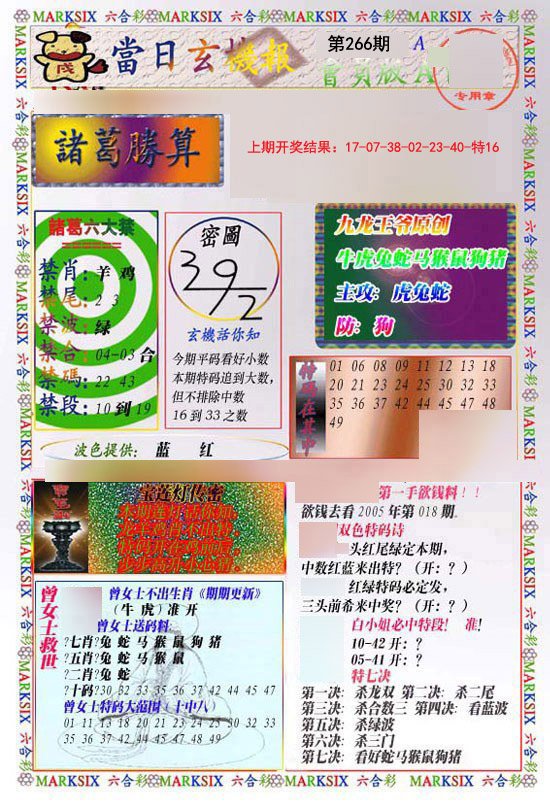 MARKSIX 六合彩 MARKSIX 六合彩 MARKSIX 六合彩 MARKSIX 六合彩 MARKSIX 六合彩
當日玄機報
第266期
A
會員版A
专用章
諸葛勝算
上期开奖结果：17-07-38-02-23-40-特16
諸葛六大禁
禁肖：羊 鸡
禁尾：2 3
禁波：绿
禁合：04-03 合
禁碼：22 43
禁段：10 到 19
密圖
39
2
玄機話你知
今期平码看好小数
本期特码追到大数，
但不排除中数
16 到 33 之数
九龙王爷原创
牛虎兔蛇马猴鼠狗猪
主攻：虎兔蛇
防：狗
特码在其中
01 06 08 09 11 12 13 18
20 21 23 24 25 30 32 33
35 36 37 42 44 45 47 48
49
波色提供： 蓝 红
宝莲灯传密
曾女士救世
曾女士不出生肖《期期更新》
（牛 虎）准 开
曾女士送码料：
?七肖?兔 蛇 马 猴 鼠 狗 猪
?五肖?兔 蛇 马 猴 鼠
?二肖?兔 蛇
?十码?30 32 33 35 36 37 42 44 45 47
曾女士特码大范围（十中八）
01 11 13 18 20 21 23 24 25 30 32 33
35 36 37 42 44 45 47 48 49
第一手欲钱料！！
欲钱去看 2005 年第 018 期
双色特码诗
头红尾绿定本期，
中数红蓝来出特?（开：?）
红绿特码必定发，
三头前希来中奖?（开：?）
白小姐必中特段！ 准！
10-42 开：?
05-41 开：?
特七决
第一决：杀龙双 第二决：杀二尾
第三决：杀合数三 第四决：看蓝波
第五决：杀绿波
第六决：杀三门
第七决：看好蛇马猴鼠狗猪
MARKSIX 六合彩 MARKSIX 六合彩 MARKSIX 六合彩 MARKSIX 六合彩 MARKSIX 六合彩